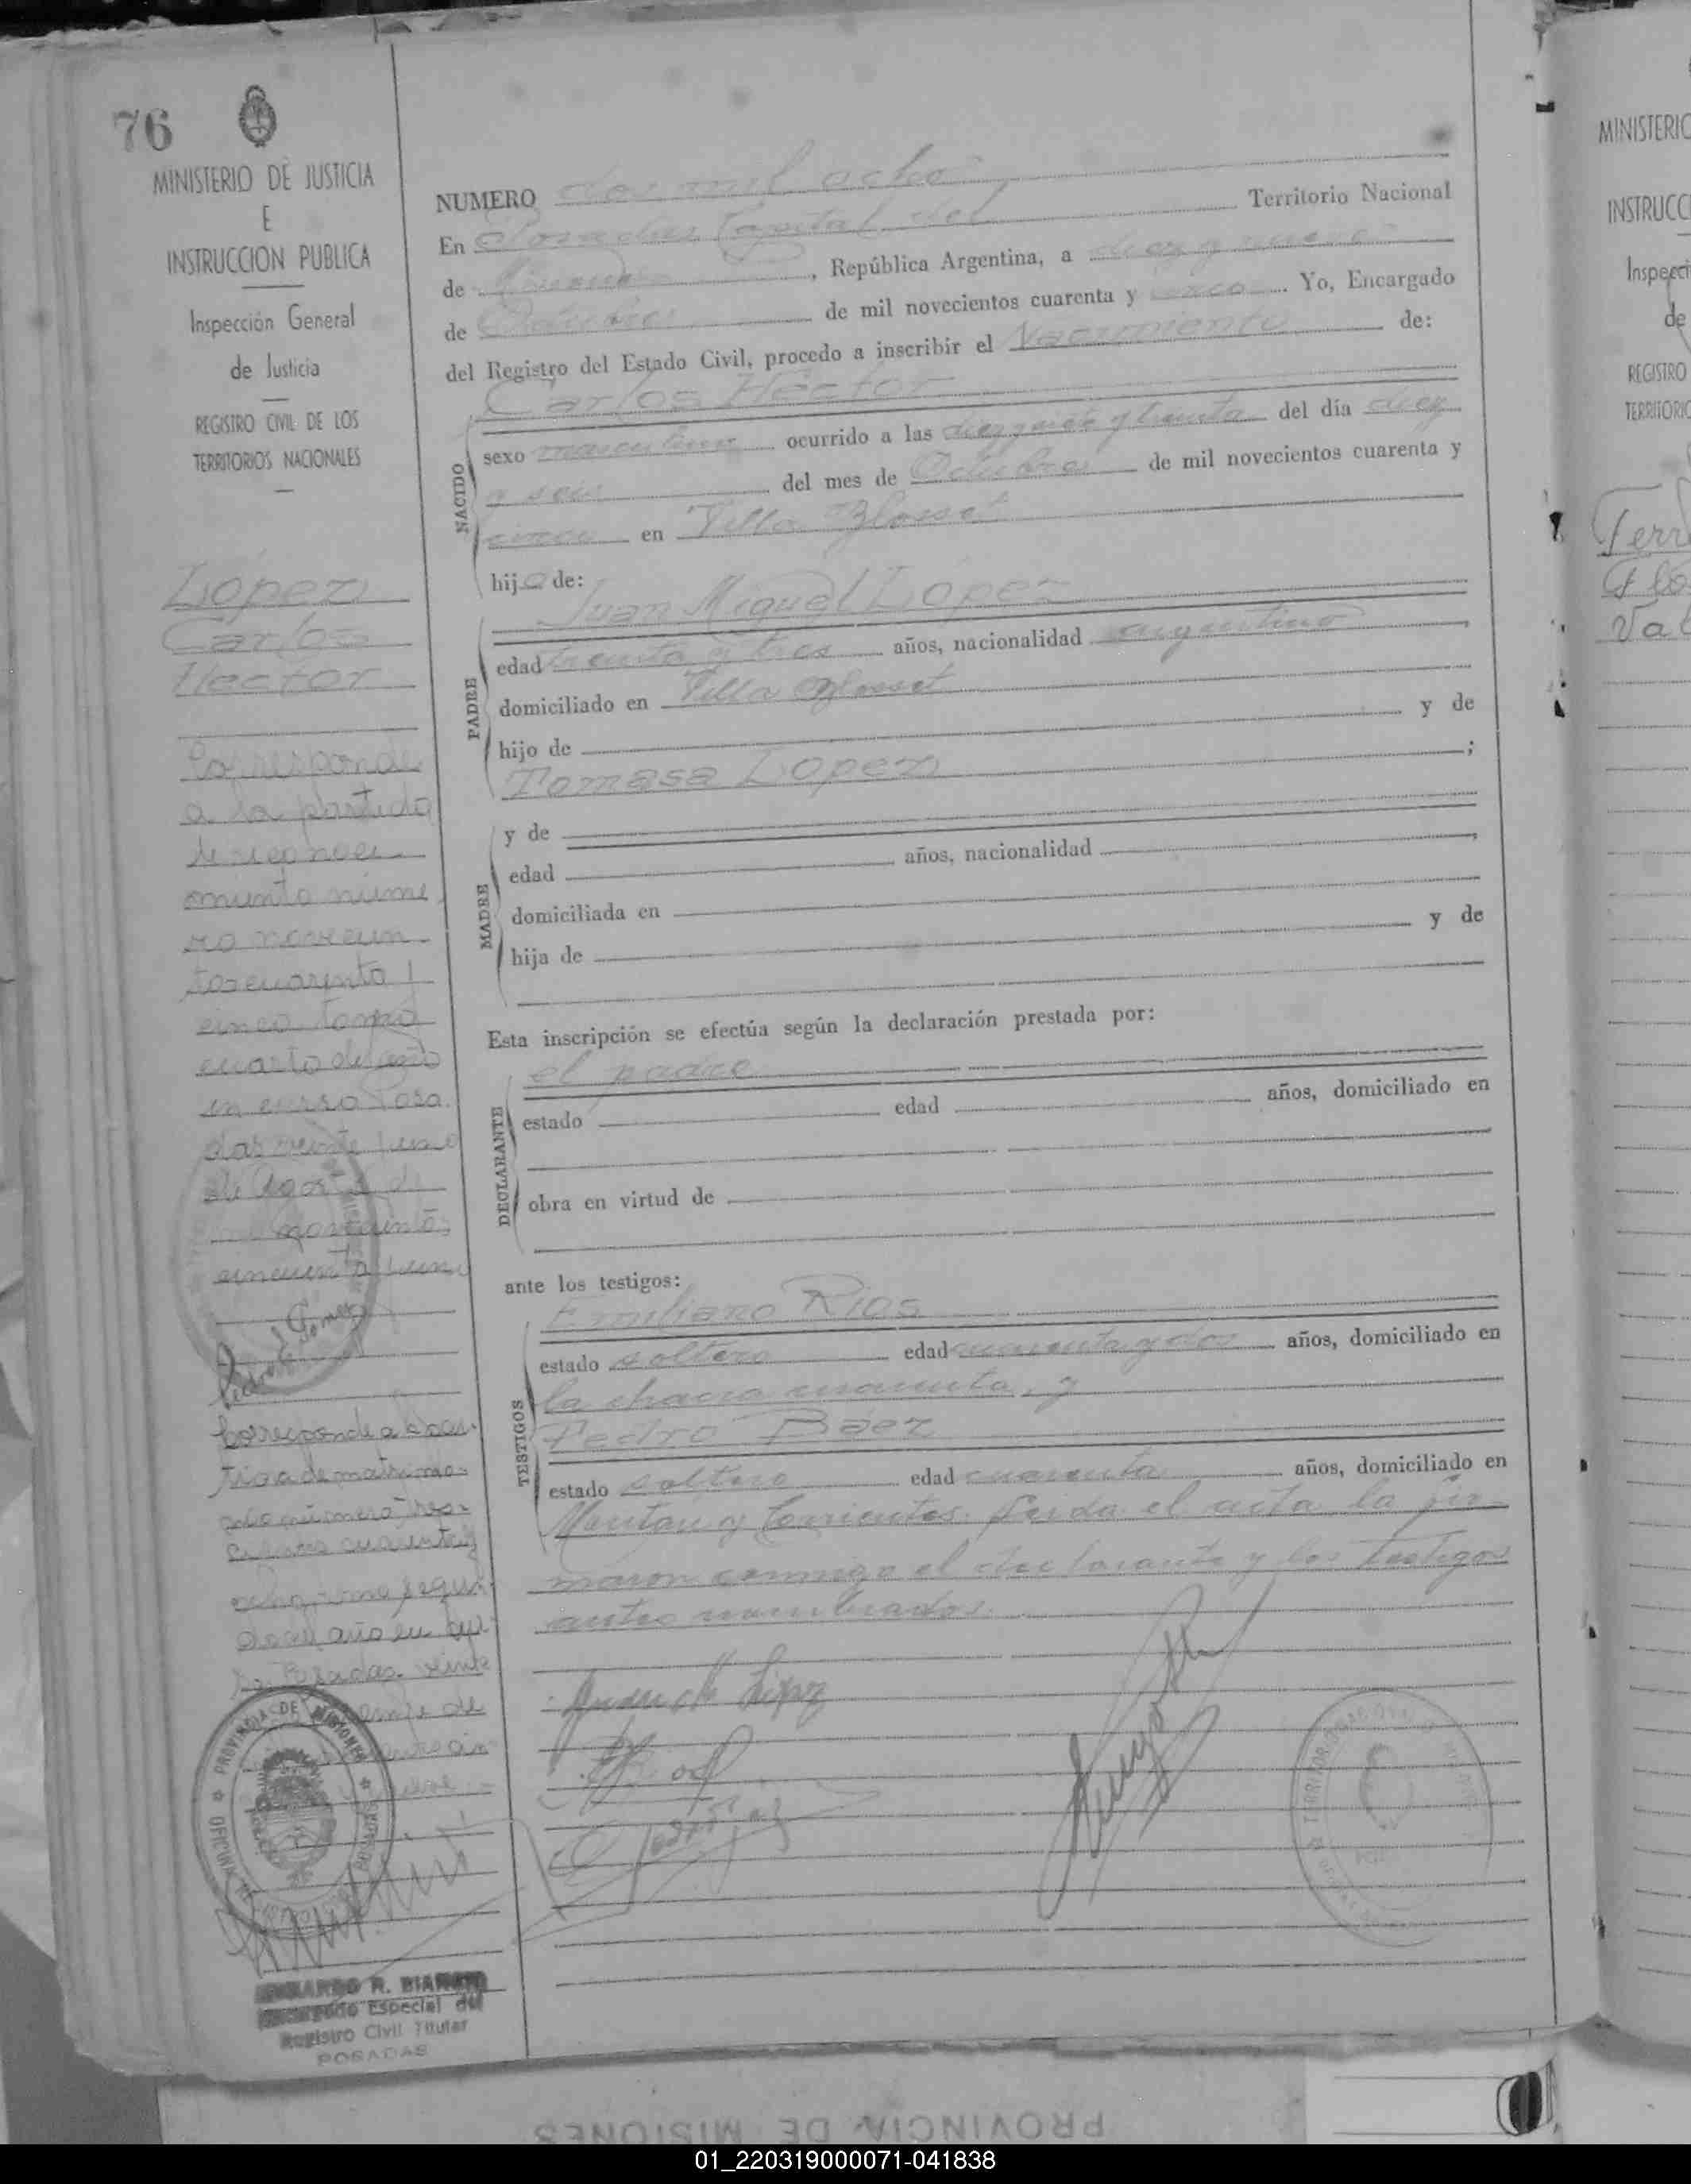 76
MINISTERIO DE JUSTICIA
E
INSTRUCCION PUBLICA
Inspección General
de Justicia
REGISTRO CIVIL DE LOS
TERRITORIOS NACIONALES
López
Carlos
Hector
Corresponde
a la partida
de reconoci-
miento núme
ro novecien
tos cuarenta y
cinco tomo
cuarto del año
en curso Posa
das veinte y uno
de Agosto de
novecientos
cincuenta y uno
Corresponde a la par-
tida de matrimo-
nio número tres-
cientos cuarenta y
ocho tomo segun-
do del año en cur-
so Posadas veinte
PROVINCIA DE MISIONES
POSADAS
R. BIANCO
Encargado Especial del
Registro Civil Titular
POSADAS
NUMERO dos mil ocho
En Posadas Capital del Territorio Nacional
de Misiones, República Argentina, a diez y nueve
de Octubre de mil novecientos cuarenta y cinco. Yo, Encargado
del Registro del Estado Civil, procedo a inscribir el Nacimiento de:
NACIDO
Carlos Héctor
sexo masculino ocurrido a las diez y siete y treinta del día diez
y seis del mes de Octubre de mil novecientos cuarenta y
cinco en Villa Blosset
hijo de:
PADRE
Juan Miguel López
edad treinta y tres años, nacionalidad argentino,
domiciliado en Villa Blosset
hijo de y de
Tomasa Lopez;
MADRE
y de
edad años, nacionalidad,
domiciliada en
hija de y de
Esta inscripción se efectúa según la declaración prestada por:
DECLARANTE
el padre
estado edad años, domiciliado en
obra en virtud de
ante los testigos:
TESTIGOS
Emiliano Rios
estado soltero edad cuarenta y dos años, domiciliado en
la chacra cuarenta, y
Pedro Báez
estado soltero edad cuarenta años, domiciliado en
y Corrientes. Leida el acta la fir-
maron conmigo el declarante y los testigos
antes nombrados.
Juan M López
MINISTERIO
INSTRUCC
Inspecci
de
REGISTRO
TERRITORIO
Val
PROVINCIA DE MISIONES
01_220319000071-041838